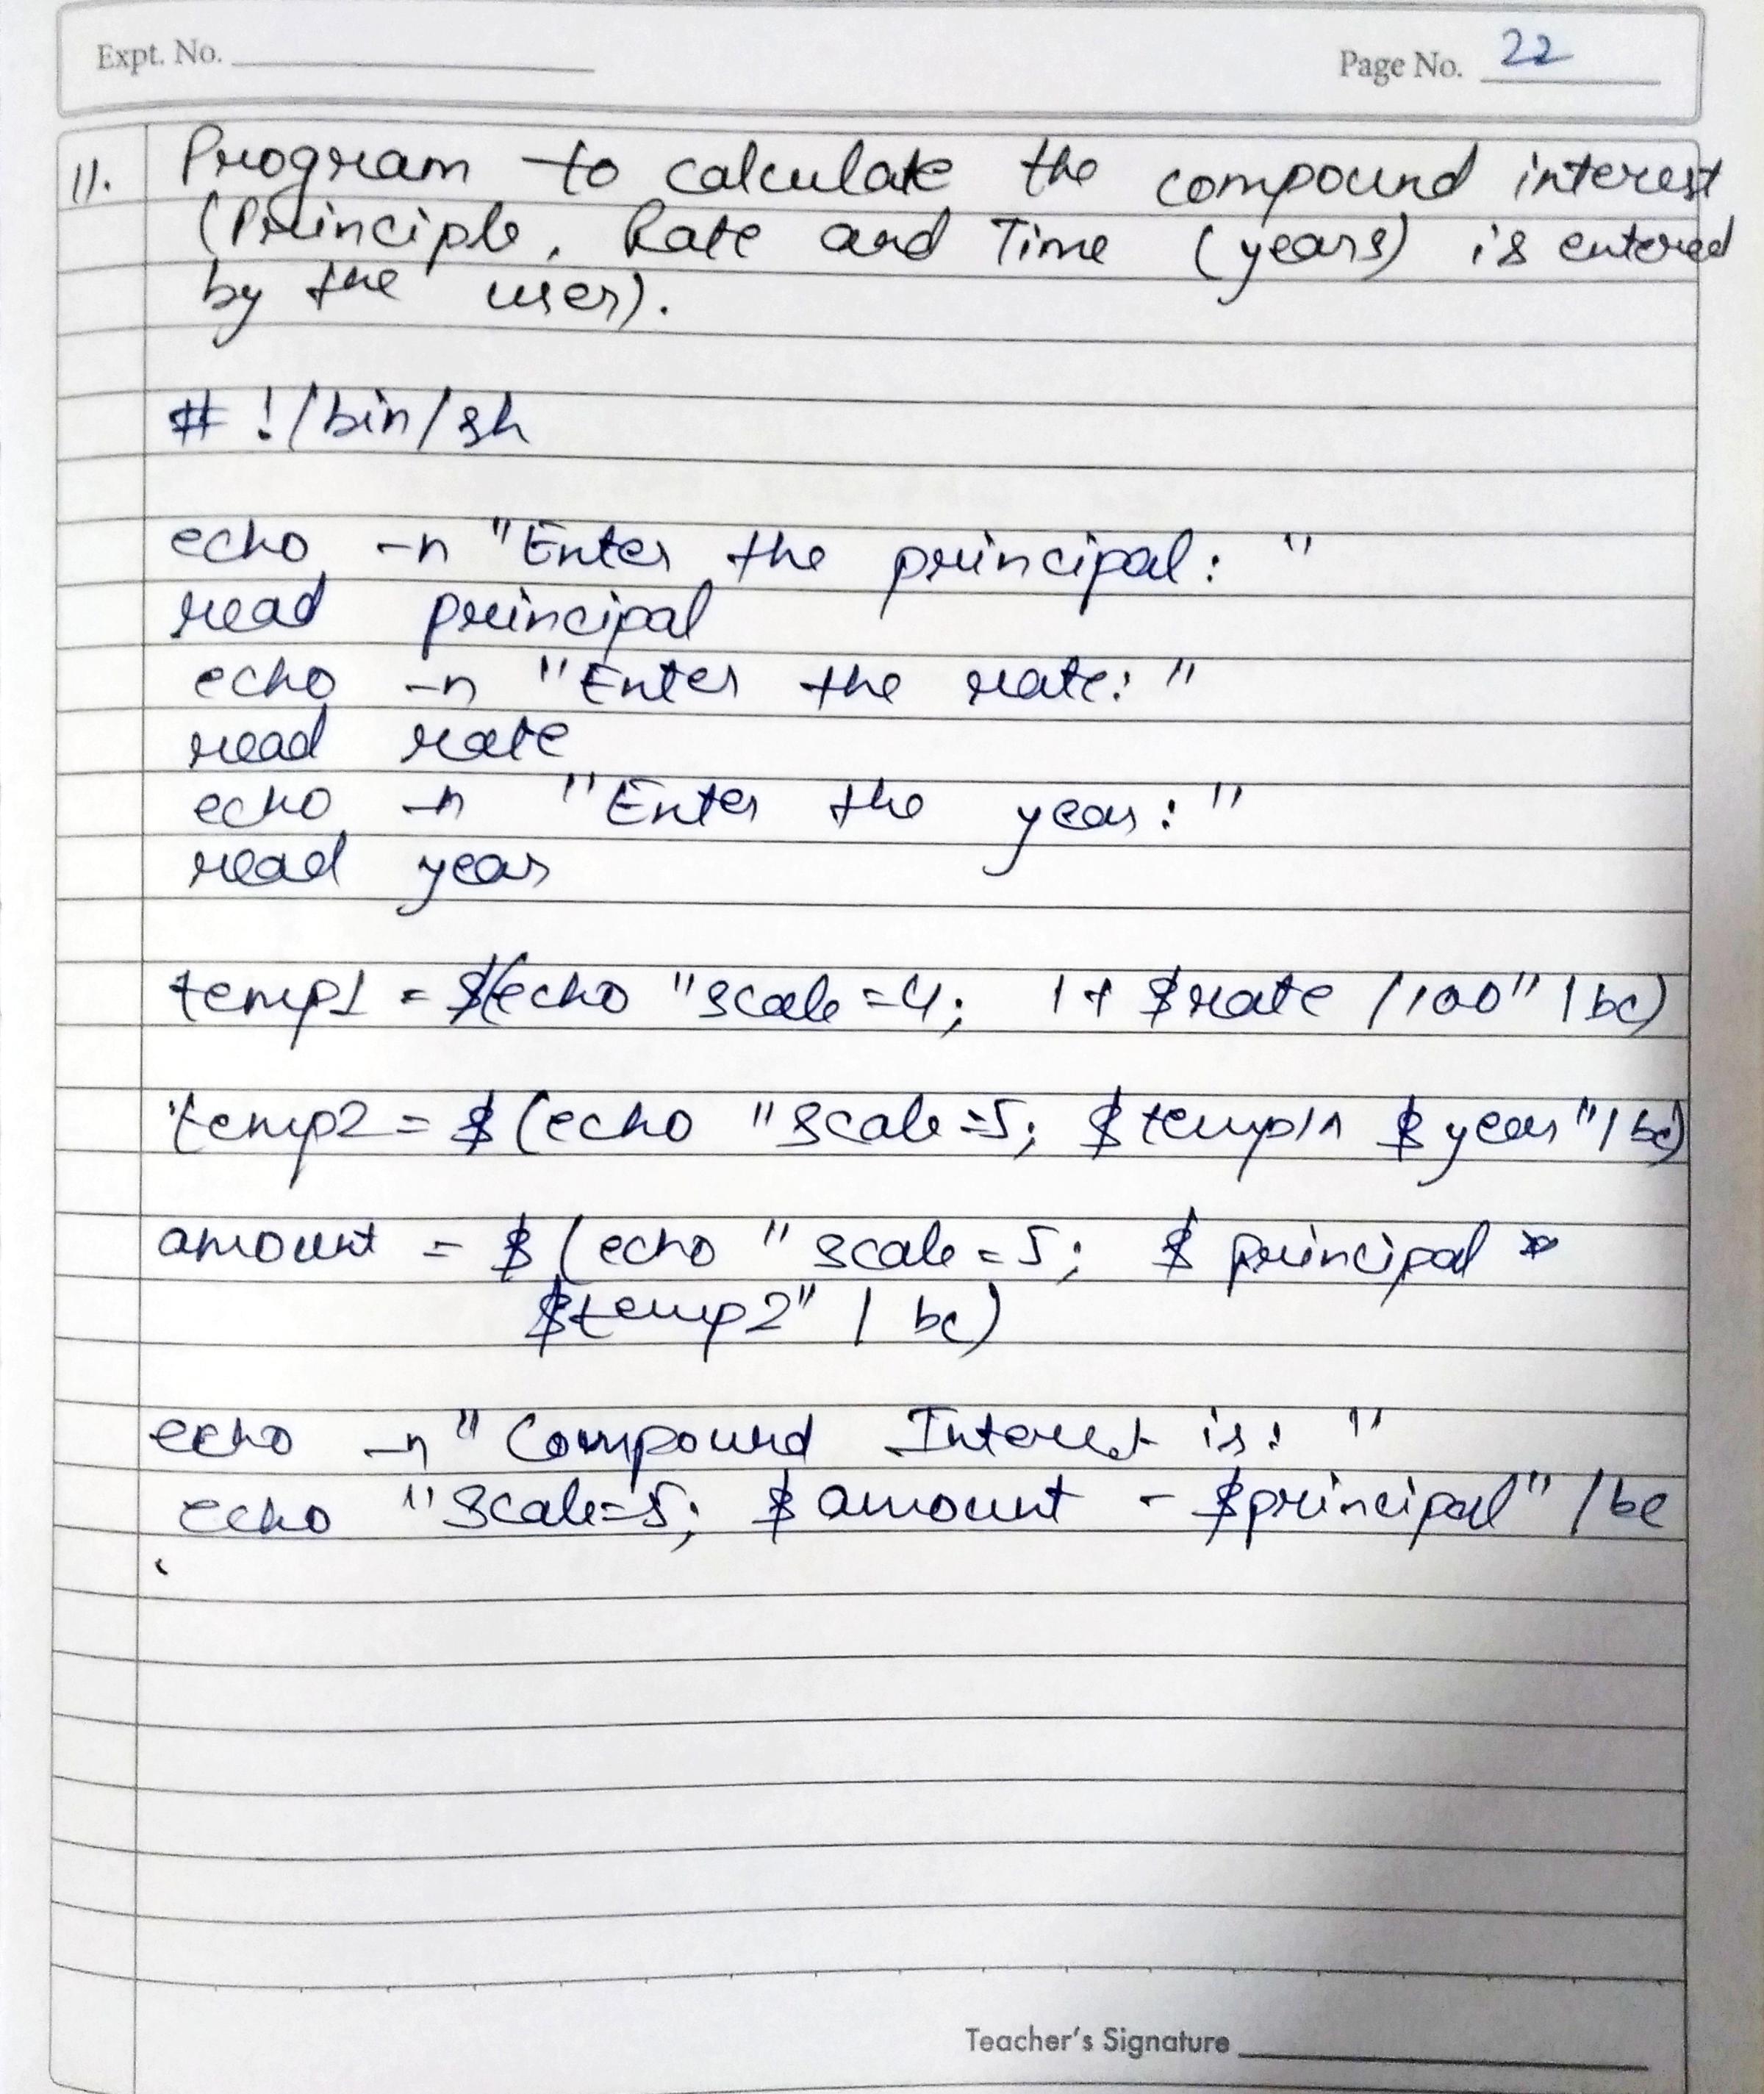 Expt. No.
Page No. 22
11. Program to calculate the compound interest
(Principle, Rate and Time (years) is entered
by the user).
#!/bin/sh
echo -n "Enter the principal: "
read principal
echo -n "Enter the rate: "
read rate
echo -n "Enter the year: "
read year
temp1 = $(echo "scale=4; 1+ $rate /100" | bc)
temp2 = $(echo "scale=5; $temp1^ $year" | bc)
amount = $(echo "scale=5; $principal *
$temp2" | bc)
echo -n "Compound Interest is: "
echo "scale=5; $amount - $principal" | bc
Teacher's Signature